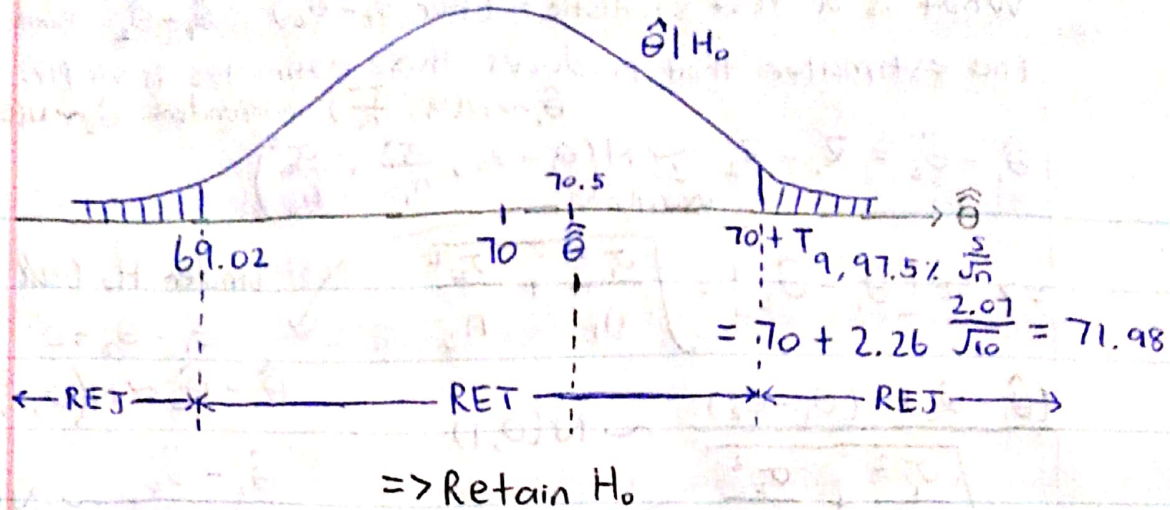 θ̂|H₀
70.5
69.02 70 θ̂̂ 70 + T₉,₉₇.₅% s/√n θ̂̂
= 70 + 2.26 2.07/√10 = 71.98
REJ RET REJ
=> Retain H₀